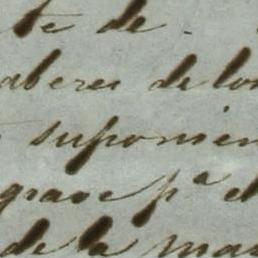 te de
aberes de los
suponien
grave pª el
de la mas